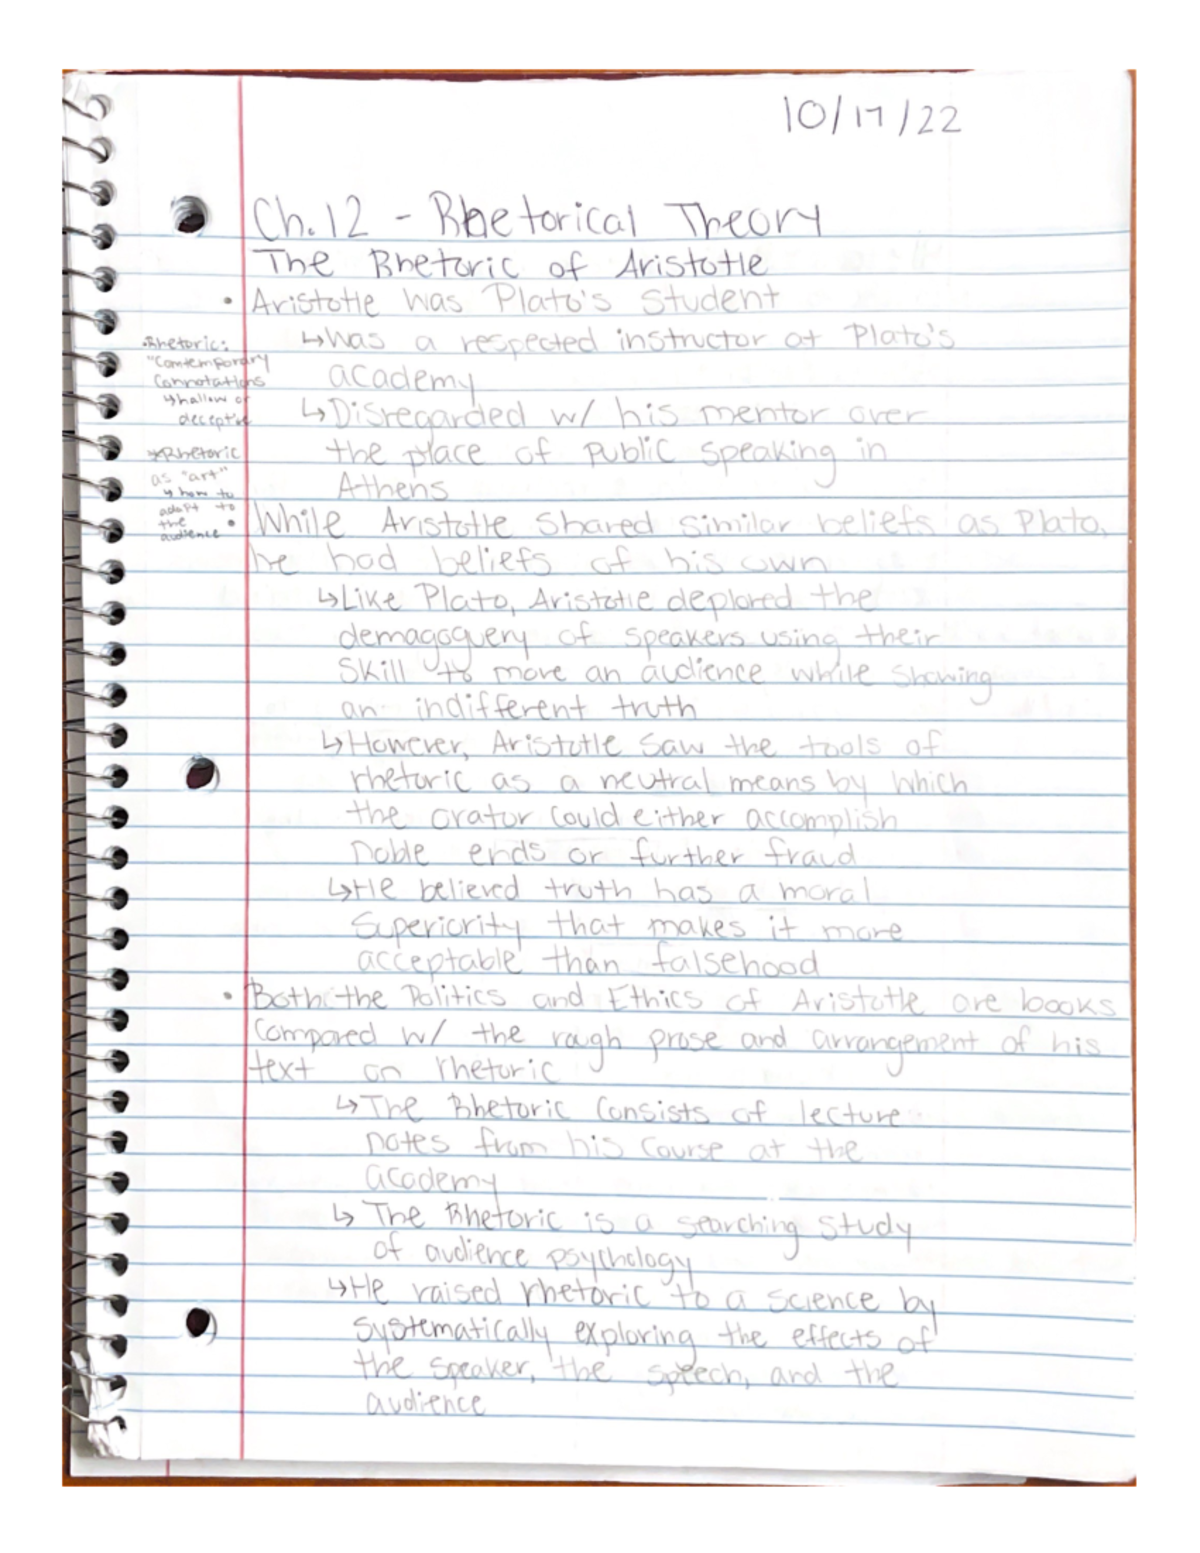 10/17/22
Ch.12 - Rhetorical Theory
The Rhetoric of Aristotle
• Aristotle was Plato's student
↳ Was a respected instructor at Plato's
academy
↳ Disregarded w/ his mentor over
the place of public speaking in
Athens
•Rhetoric:
"Contemporary
Connotations
↳ hallow or
deceptive
Rhetoric
as "art"
↳ how to
adapt to
the
audience
• While Aristotle shared similar beliefs as Plato,
he had beliefs of his own
↳ Like Plato, Aristotle deplored the
demagoguery of speakers using their
skill to move an audience while showing
an indifferent truth
↳ However, Aristotle saw the tools of
rhetoric as a neutral means by which
the orator could either accomplish
noble ends or further fraud
↳ He believed truth has a moral
superiority that makes it more
acceptable than falsehood
• Both the Politics and Ethics of Aristotle are books
compared w/ the rough prose and arrangement of his
text on rhetoric
↳ The Rhetoric consists of lecture
notes from his course at the
academy
↳ The Rhetoric is a searching study
of audience psychology
↳ He raised rhetoric to a science by
systematically exploring the effects of
the speaker, the speech, and the
audience